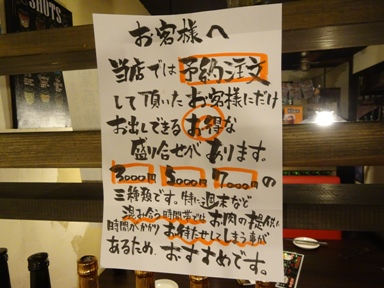 SHOTS
お客様へ
当店では予約注文
して頂いたお客様にだけ
お出しできるお得な
盛り合せがあります。
3000円 5000円 7000円の
三種類です。特に週末など
混み合う時間帯ではお肉の提供に
時間がかかりお待たせしてしまう事が
あるため、おすすめです。